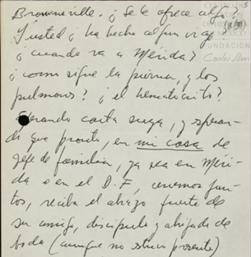 Brownsville. ¿Se le ofrece algo?
Y usted, ¿ha hecho algún viaje?
¿cuándo va a Mérida?
¿cómo sigue la pierna, y los
pulmones? ¿el hematócrito?
Esperando carta suya, y esperan-
do que pronto, en mi casa de
jefe de familia, ya sea en Méri-
da o en el D.F., cenemos jun-
tos, reciba el abrazo fuerte de
su amigo, discípulo y ahijado de
boda (aunque no estuvo presente)
FUNDACIÓN